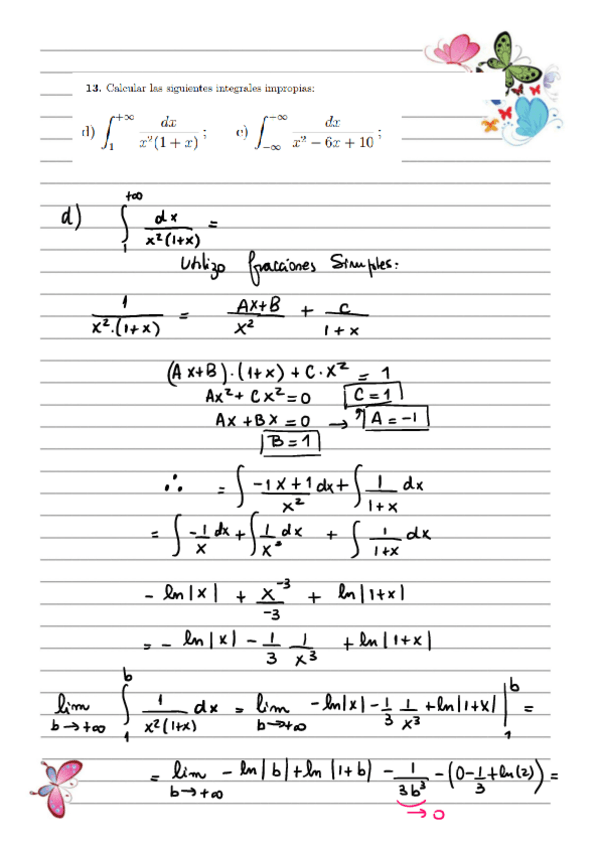 13. Calcular las siguientes integrales impropias:
d) ∫_1^{+∞} dx / x²(1 + x) ; e) ∫_{-∞}^{-∞} dx / x² − 6x + 10 ;
d) ∫_1^{+∞} dx / x²(1+x) =
Utilizo fracciones Simples:
1 / x².(1+x) = Ax+B / x² + C / 1+x
(Ax+B).(1+x) + C.x² = 1
Ax² + Cx² = 0 C=1
Ax + Bx = 0 → A=-1
B=1
∴ = ∫ -1x+1 / x² dx + ∫ 1 / 1+x dx
= ∫ -1/x dx + ∫ 1/x² dx + ∫ 1 / 1+x dx
- ln|x| + x^{-3} / -3 + ln|1+x|
= - ln|x| - 1/3 1/x³ + ln|1+x|
lim_{b→+∞} ∫_1^b 1 / x²(1+x) dx = lim_{b→+∞} -ln|x| - 1/3 1/x³ + ln|1+x| |_1^b =
= lim_{b→+∞} - ln|b| + ln|1+b| - 1 / 3b³ - (0 - 1/3 + ln(2)) =
→ 0